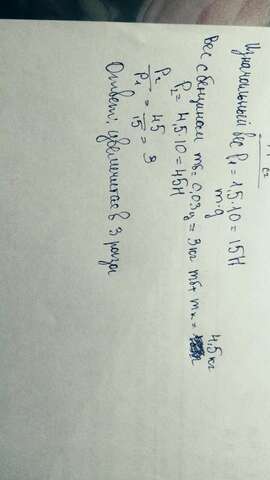 Изначальный вес P₁ = 1,5·10 = 15Н
m·g
Вес с бензином mб = 0,03ц = 3кг mб + mк = 4,5кг
P₂ = 4,5·10 = 45Н
P₂/P₁ = 45/15 = 3
Ответ: увеличится в 3 раза